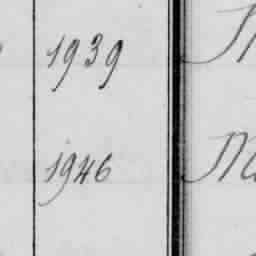 1939
1946